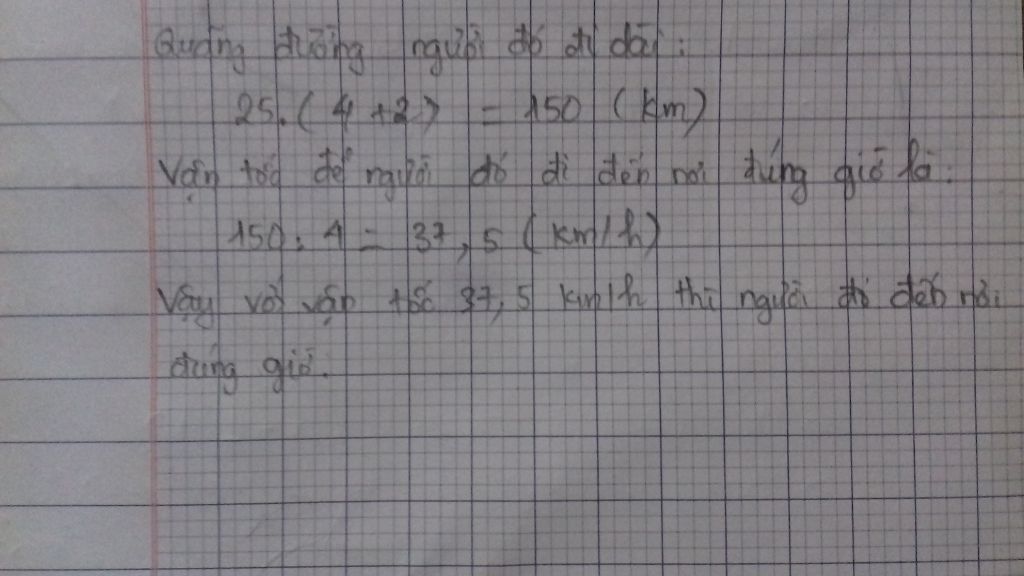 Quãng đường người đó đi dài:
25.(4+2) = 150 (km)
Vận tốc để người đó đi đến nơi đúng giờ là:
150:4 = 37,5 (km/h)
Vậy với vận tốc 37,5 km/h thì người đó đến nơi
đúng giờ.